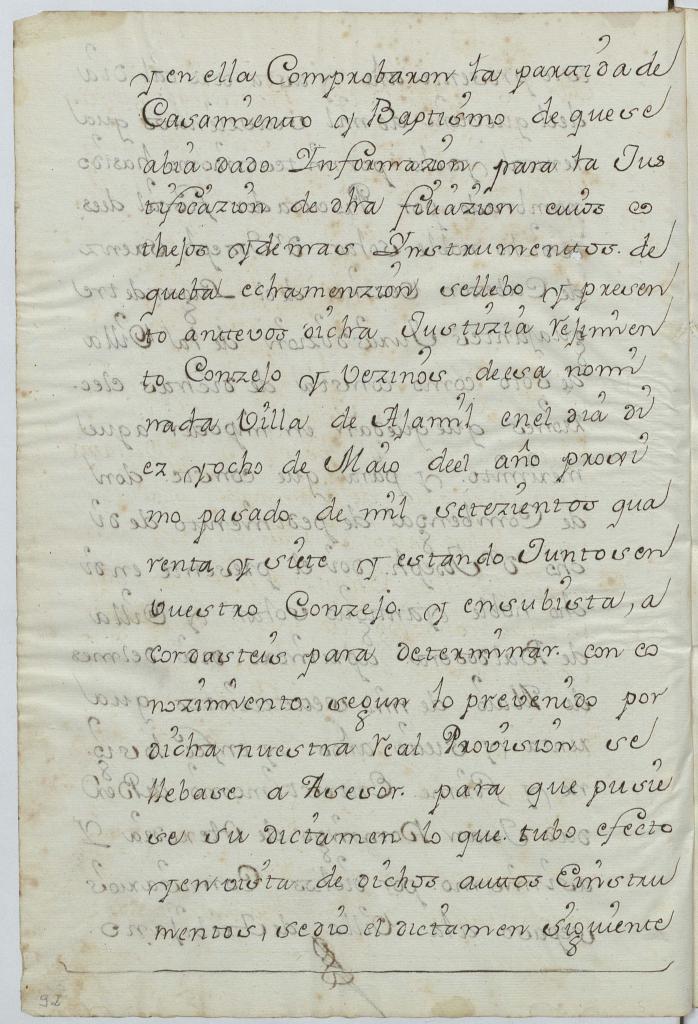 y en ella Comprobaron la partida de
Casamiento y Baptismo de que se
abia dado Informazion para la Jus
tificazion de dha filiazion cuios co
thejos y demas Ynstrumentos de
queba echa menzion se llebo y presen
to antte vos dicha Justizia rejimien
to Conzejo y vezinos de esa nomi
nada Villa de Ajamil en el dia di
ez y ocho de Maio de el año proxi
mo pasado de mil setezientos qua
renta y siete y estando Juntos en
vuestro Conzejo y en su bista, a
cordasteis para determinar con co
nozimiento segun lo prevenido por
dicha nuestra real Provision se
llebase a Asesor para que pusie
se su dictamen lo que tubo efecto
y en vista de dichos auttos E instru
mentos, se dio el dictamen siguiente
92